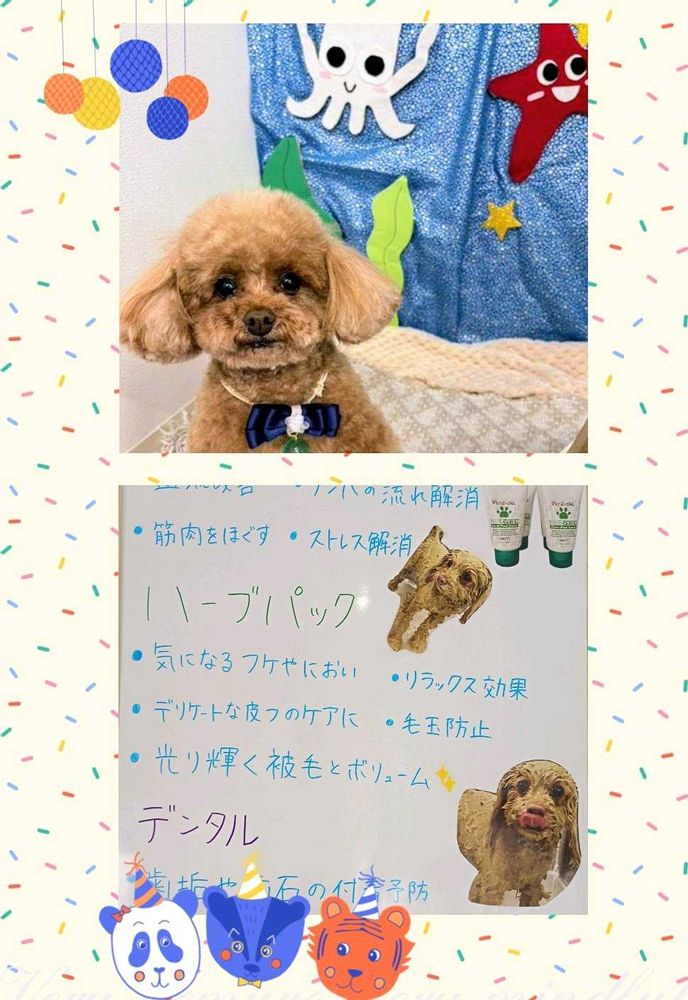 の流れ解消
・筋肉をほぐす ・ストレス解消
ハーブパック
・気になるフケやにおい
・リラックス効果
・デリケートな皮フのケアに
・毛玉防止
・光り輝く被毛とボリューム
デンタル
歯垢や 石の付着予防